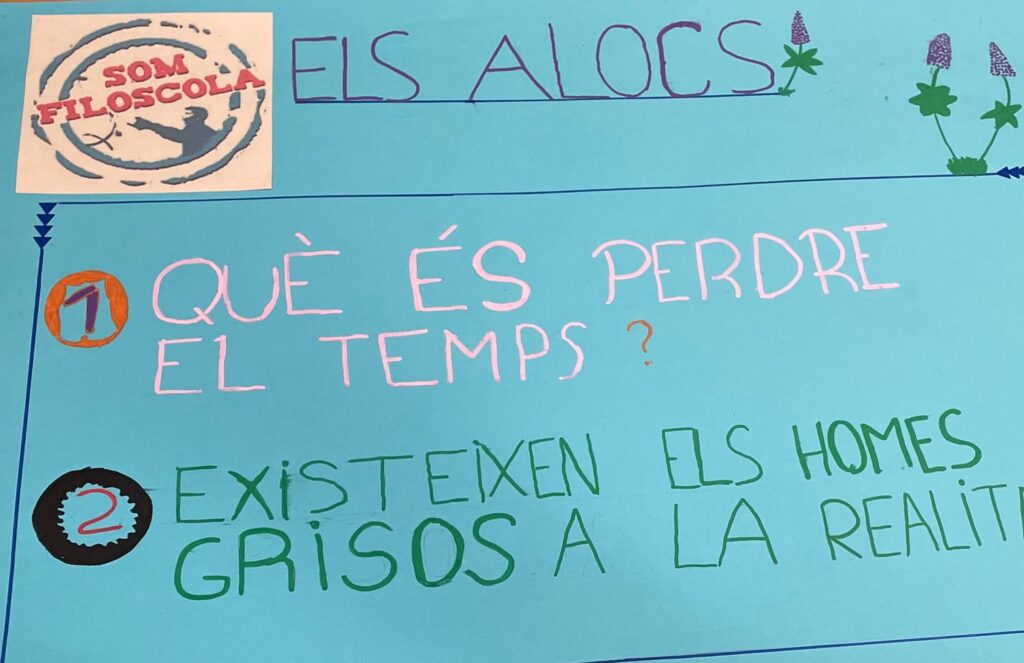 SOM
FILOSCOLA
ELS ALOCS
1 QUÈ ÉS PERDRE
EL TEMPS ?
2 EXISTEIXEN ELS HOMES
GRISOS A LA